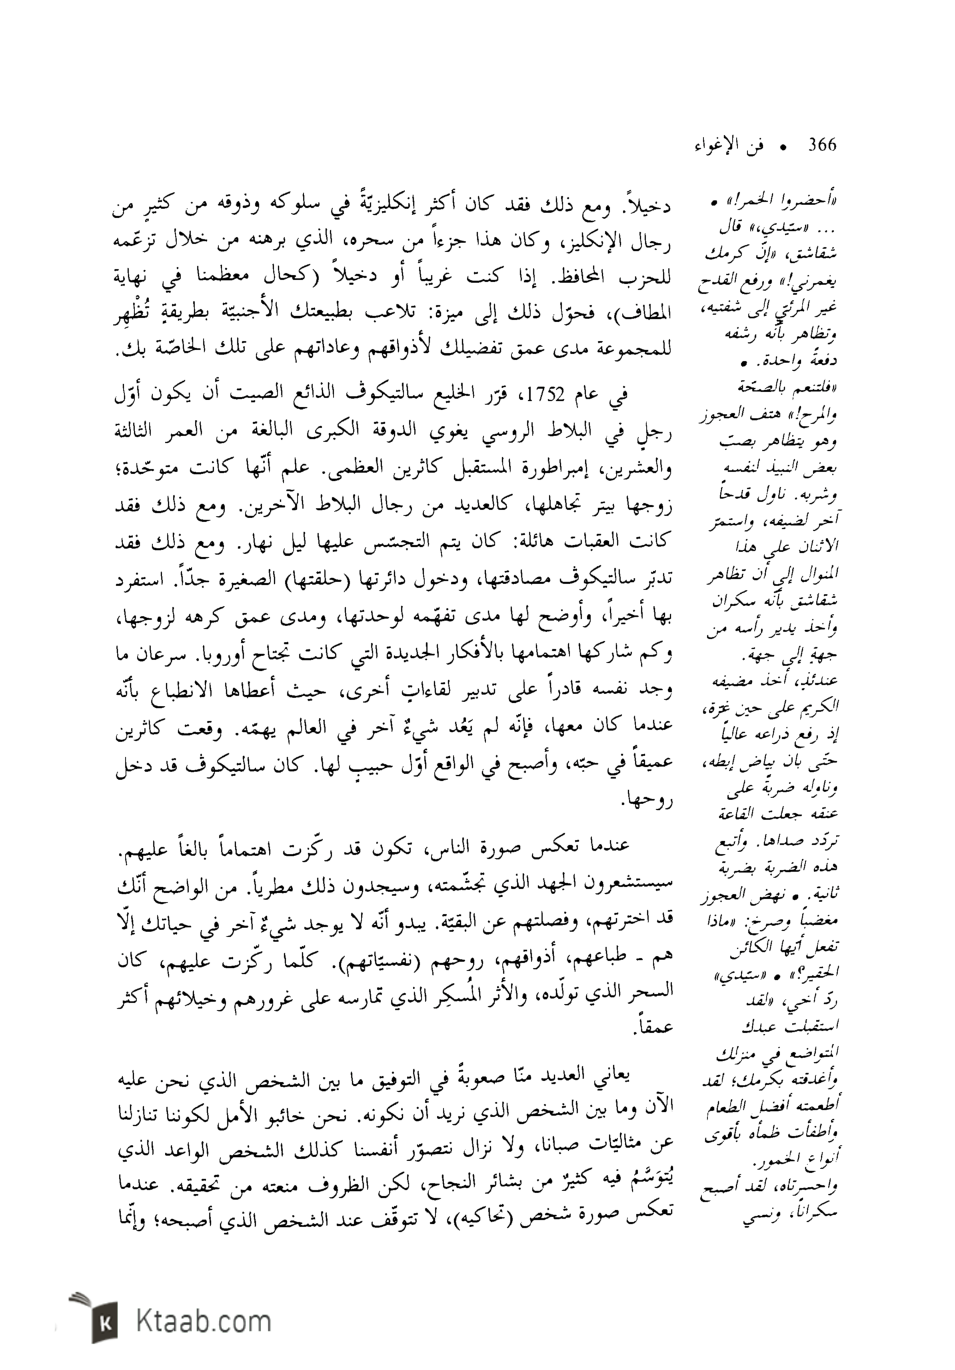 366 • فن الإغواء
دخيلاً. ومع ذلك فقد كان أكثر إنكليزيّةً في سلوكه وذوقه من كثيرٍ من
رجال الإنكليز، وكان هذا جزءاً من سحره، الذي برهنه من خلال تزعّمه
للحزب المحافظ. إذا كنت غريباً أو دخيلاً (كحال معظمنا في نهاية
المطاف)، فحوّل ذلك إلى ميزة: تلاعب بطبيعتك الأجنبيّة بطريقةٍ تُظْهِر
للمجموعة مدى عمق تفضيلك لأذواقهم وعاداتهم على تلك الخاصّة بك.
في عام 1752، قرّر الخليع سالتيكوف الذائع الصيت أن يكون أوّل
رجلٍ في البلاط الروسي يغوي الدوقة الكبرى البالغة من العمر الثالثة
والعشرين، إمبراطورة المستقبل كاثرين العظمى. علم أنّها كانت متوحّدة؛
زوجها بيتر تجاهلها، كالعديد من رجال البلاط الآخرين. ومع ذلك فقد
كانت العقبات هائلة: كان يتم التجسّس عليها ليل نهار. ومع ذلك فقد
تدبّر سالتيكوف مصادقتها، ودخول دائرتها (حلقتها) الصغيرة جدّاً. استفرد
بها أخيراً، وأوضح لها مدى تفهّمه لوحدتها، ومدى عمق كرهه لزوجها،
وكم شاركها اهتمامها بالأفكار الجديدة التي كانت تجتاح أوروبا. سرعان ما
وجد نفسه قادراً على تدبير لقاءاتٍ أخرى، حيث أعطاها الانطباع بأنّه
عندما كان معها، فإنّه لم يَعُد شيءٌ آخر في العالم يهمّه. وقعت كاثرين
عميقاً في حبّه، وأصبح في الواقع أوّل حبيبٍ لها. كان سالتيكوف قد دخل
روحها.
عندما تعكس صورة الناس، تكون قد ركّزت اهتماماً بالغاً عليهم.
سيستشعرون الجهد الذي تجشّمته، وسيجدون ذلك مطرياً. من الواضح أنّك
قد اخترتهم، وفصلتهم عن البقيّة. يبدو أنّه لا يوجد شيءٌ آخر في حياتك إلّا
هم - طباعهم، أذواقهم، روحهم (نفسيّاتهم). كلّما ركّزت عليهم، كان
السحر الذي تولّده، والأثر المُسكِر الذي تمارسه على غرورهم وخيلائهم أكثر
عمقاً.
يعاني العديد منّا صعوبةً في التوفيق ما بين الشخص الذي نحن عليه
الآن وما بين الشخص الذي نريد أن نكونه. نحن خائبو الأمل لكوننا تنازلنا
عن مثاليّات صبانا، ولا نزال نتصوّر أنفسنا كذلك الشخص الواعد الذي
يُتوَسَّمُ فيه كثيرٌ من بشائر النجاح، لكن الظروف منعته من تحقيقه. عندما
تعكس صورة شخص (تحاكيه)، لا تتوقّف عند الشخص الذي أصبحه؛ وإنّما
«أحضروا الخمر!» •
... «سيّدي،» قال
شقاشق، «إنّ كرمك
يغمرني!» ورفع القدح
غير المرئي إلى شفتيه،
وتظاهر بأنّه رشفه
دفعةً واحدة. •
«فلتنعم بالصحّة
والمرح!» هتف العجوز
وهو يتظاهر بصبّ
بعض النبيذ لنفسه
وشربه. ناول قدحاً
آخر لضيفه، واستمرّ
الاثنان على هذا
المنوال إلى أن تظاهر
شقاشق بأنّه سكران
وأخذ يدير رأسه من
جهةٍ إلى جهة.
عندئذٍ، أخذ مضيفه
الكريم على حين غرّة،
إذ رفع ذراعه عالياً
حتّى بان بياض إبطه،
وناوله ضربةً على
عنقه جعلت القاعة
تردّد صداها. وأتبع
هذه الضربة بضربة
ثانية. • نهض العجوز
مغضباً وصرخ: «ماذا
تفعل أيّها الكائن
الحقير؟» • «سيّدي»
ردّ أخي، «لقد
استقبلت عبدك
المتواضع في منزلك
وأغدقته بكرمك؛ لقد
أطعمته أفضل الطعام
وأطفأت ظمأه بأقوى
أنواع الخمور.
واحسرتاه، لقد أصبح
سكراناً، ونسي
Ktaab.com